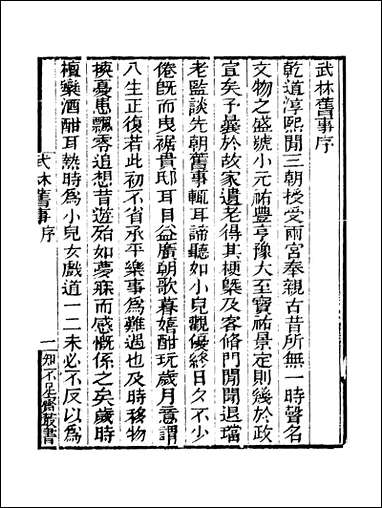 武林舊事序
乾道淳熙間三朝授受兩宮奉親古昔所無一時聲名
文物之盛號小元祐豐亨豫大至寶祐景定則幾於政
宣矣予曩於故家遺老得其梗槩及客脩門閒聞退璫
老監談先朝舊事輒耳諦聽如小兒觀優終日夕不少
倦既而曳裾貴邸耳目益廣朝歌暮嬉酣玩歲月意謂
人生正復若此初不省承平樂事為難遇也及時移物
換憂患飄零追想昔遊殆如夢寐而感慨係之矣歲時
檀欒酒酣耳熱時為小兒女戲道一二未必不反以為
武林舊事序
一
知不足齋叢書